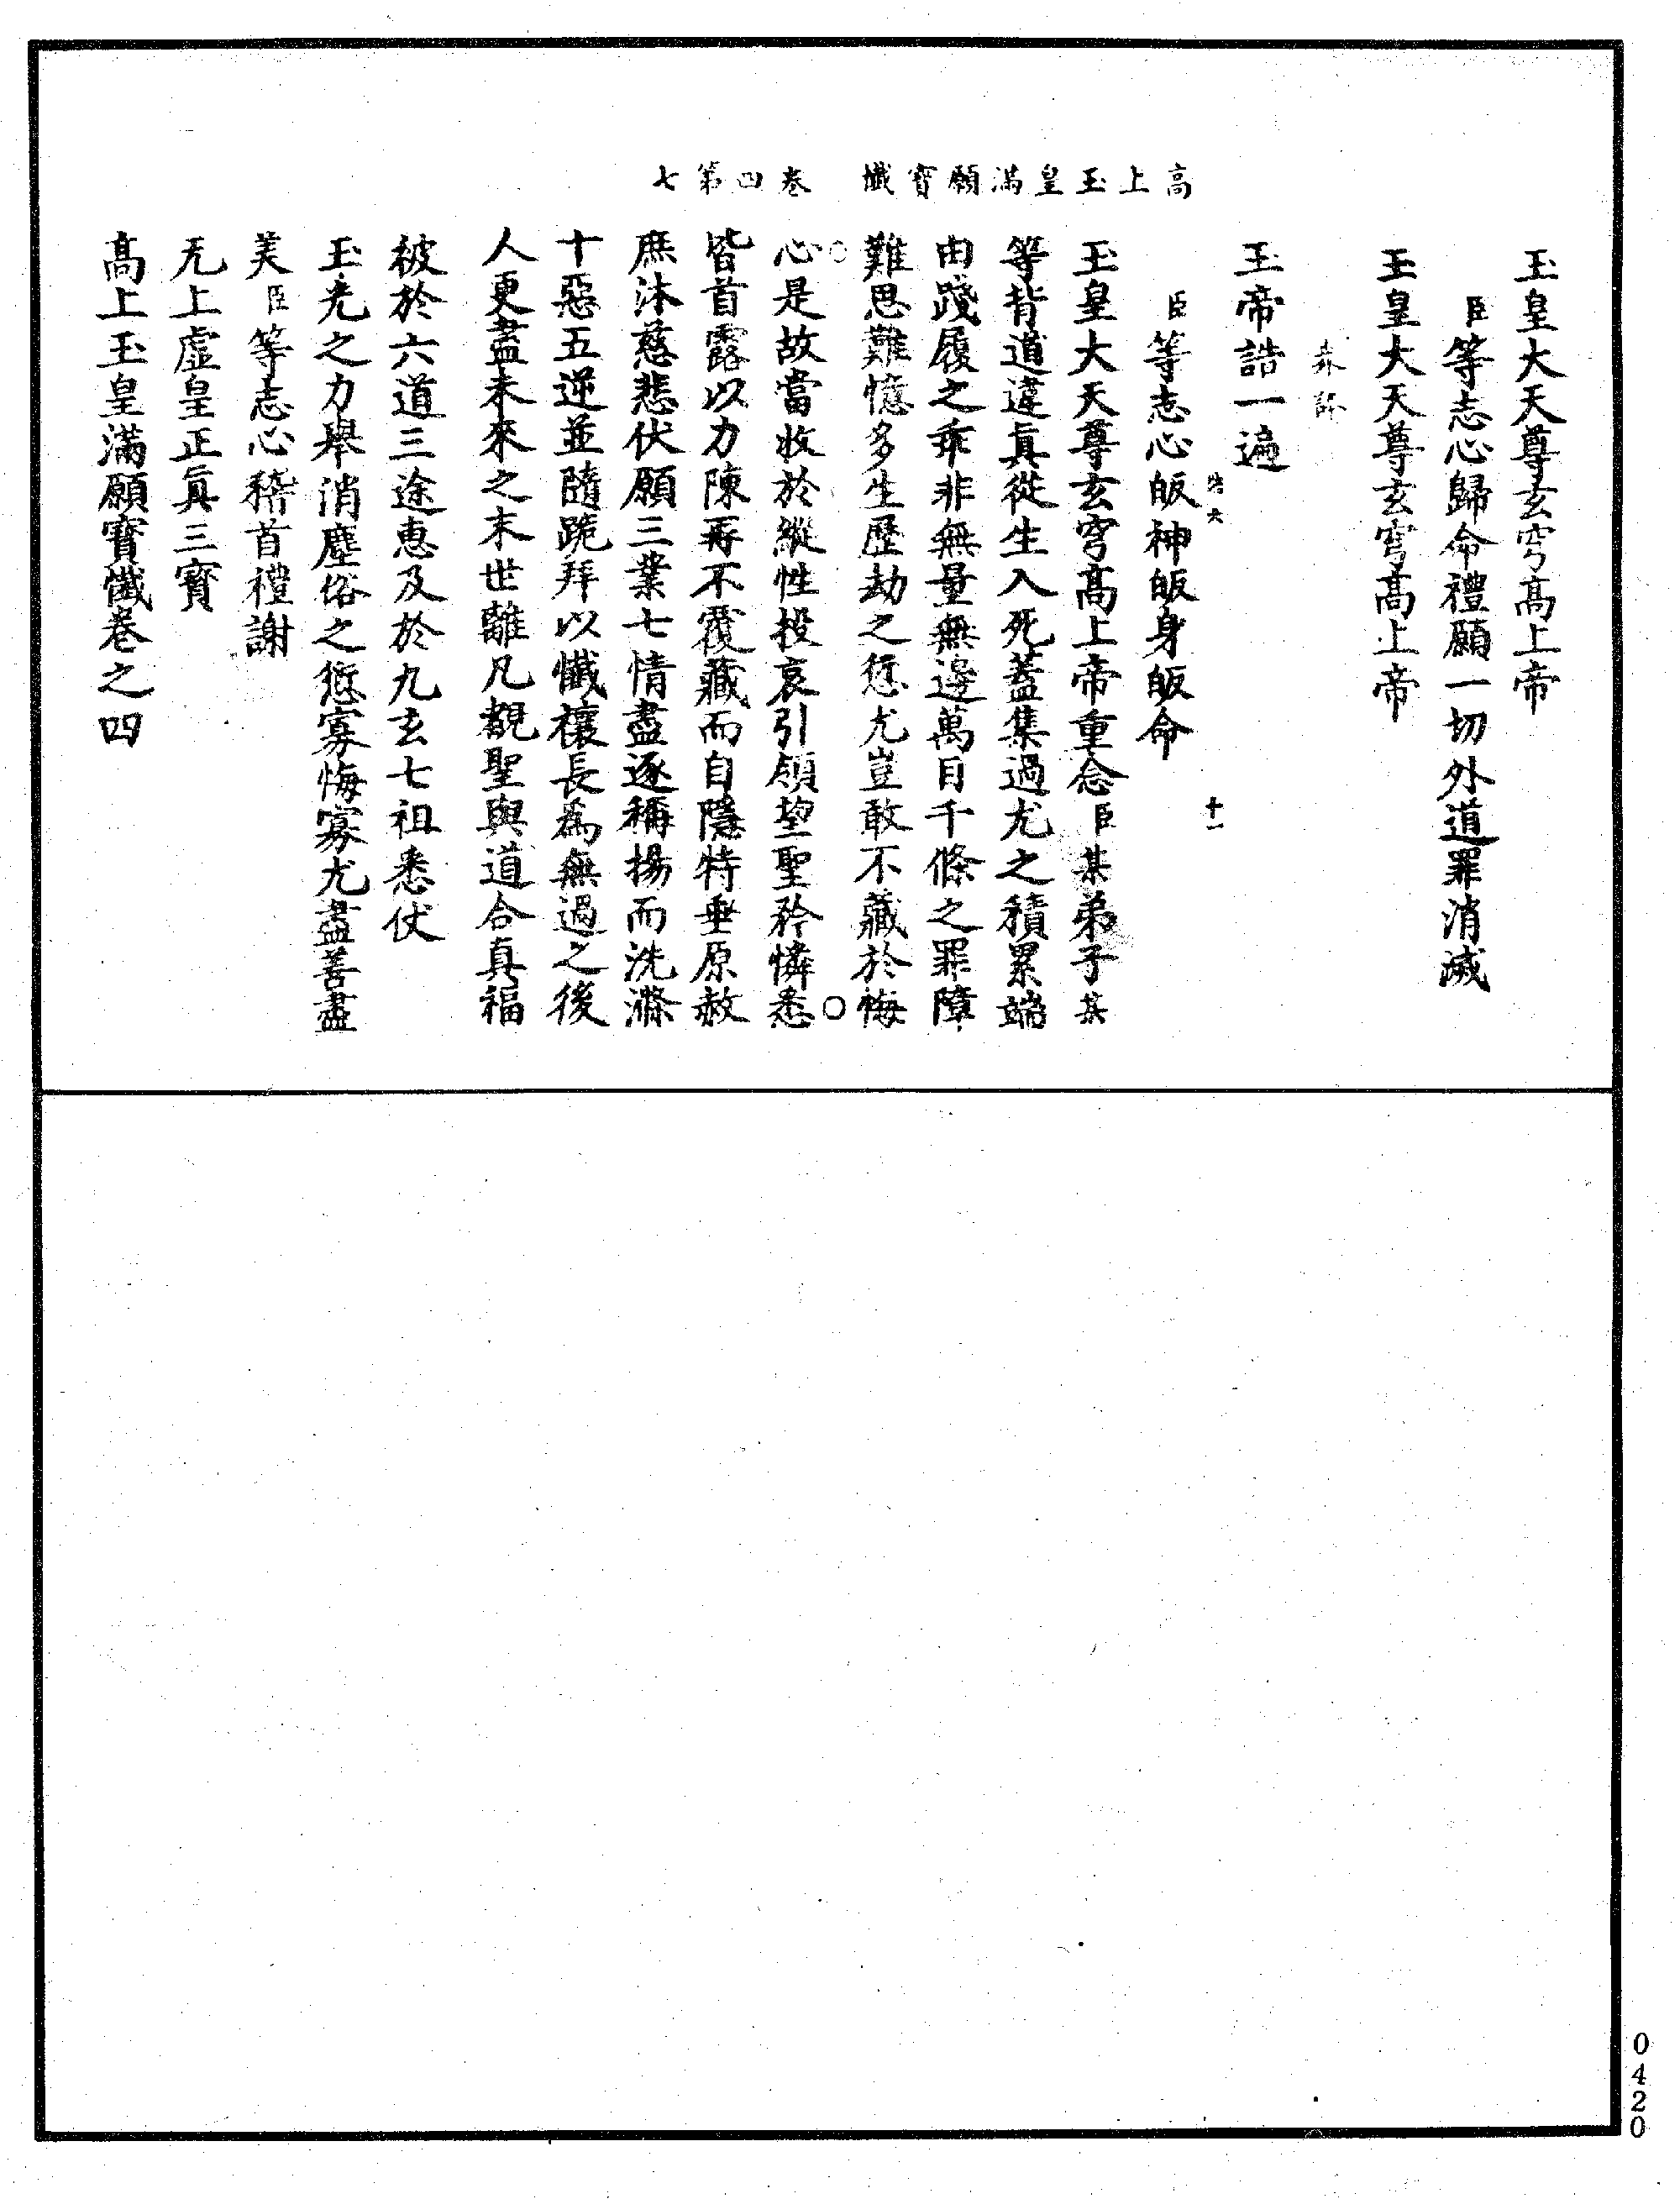 高上玉皇滿願寶懺　卷四第七
玉皇大天尊玄穹高上帝
臣等志心歸命禮願一切外道罪消滅
玉皇大天尊玄穹高上帝
玉帝誥一遍
十一
臣等志心皈神皈身皈命
玉皇大天尊玄穹高上帝重念臣某弟子某
等背道違真從生入死蓋集過尤之積累端
由踐履之乖非無量無邊萬目千條之罪障
難思難憶多生歷劫之愆尤豈敢不藏於悔
心是故當收於縱性投哀引領望聖矜憐悉
皆首露以力陳再不覆藏而自隱特垂原赦
庶沐慈悲伏願三業七情盡逐稱揚而洗滌
十惡五逆並隨跪拜以懺禳長爲無過之後
人更盡未來之末世離凡覩聖與道合真福
被於六道三途惠及於九玄七祖悉仗
玉光之力舉消塵俗之愆寡悔寡尤盡善盡
美臣等志心稽首禮謝
无上虛皇正真三寶
高上玉皇滿願寶懺卷之四
0420